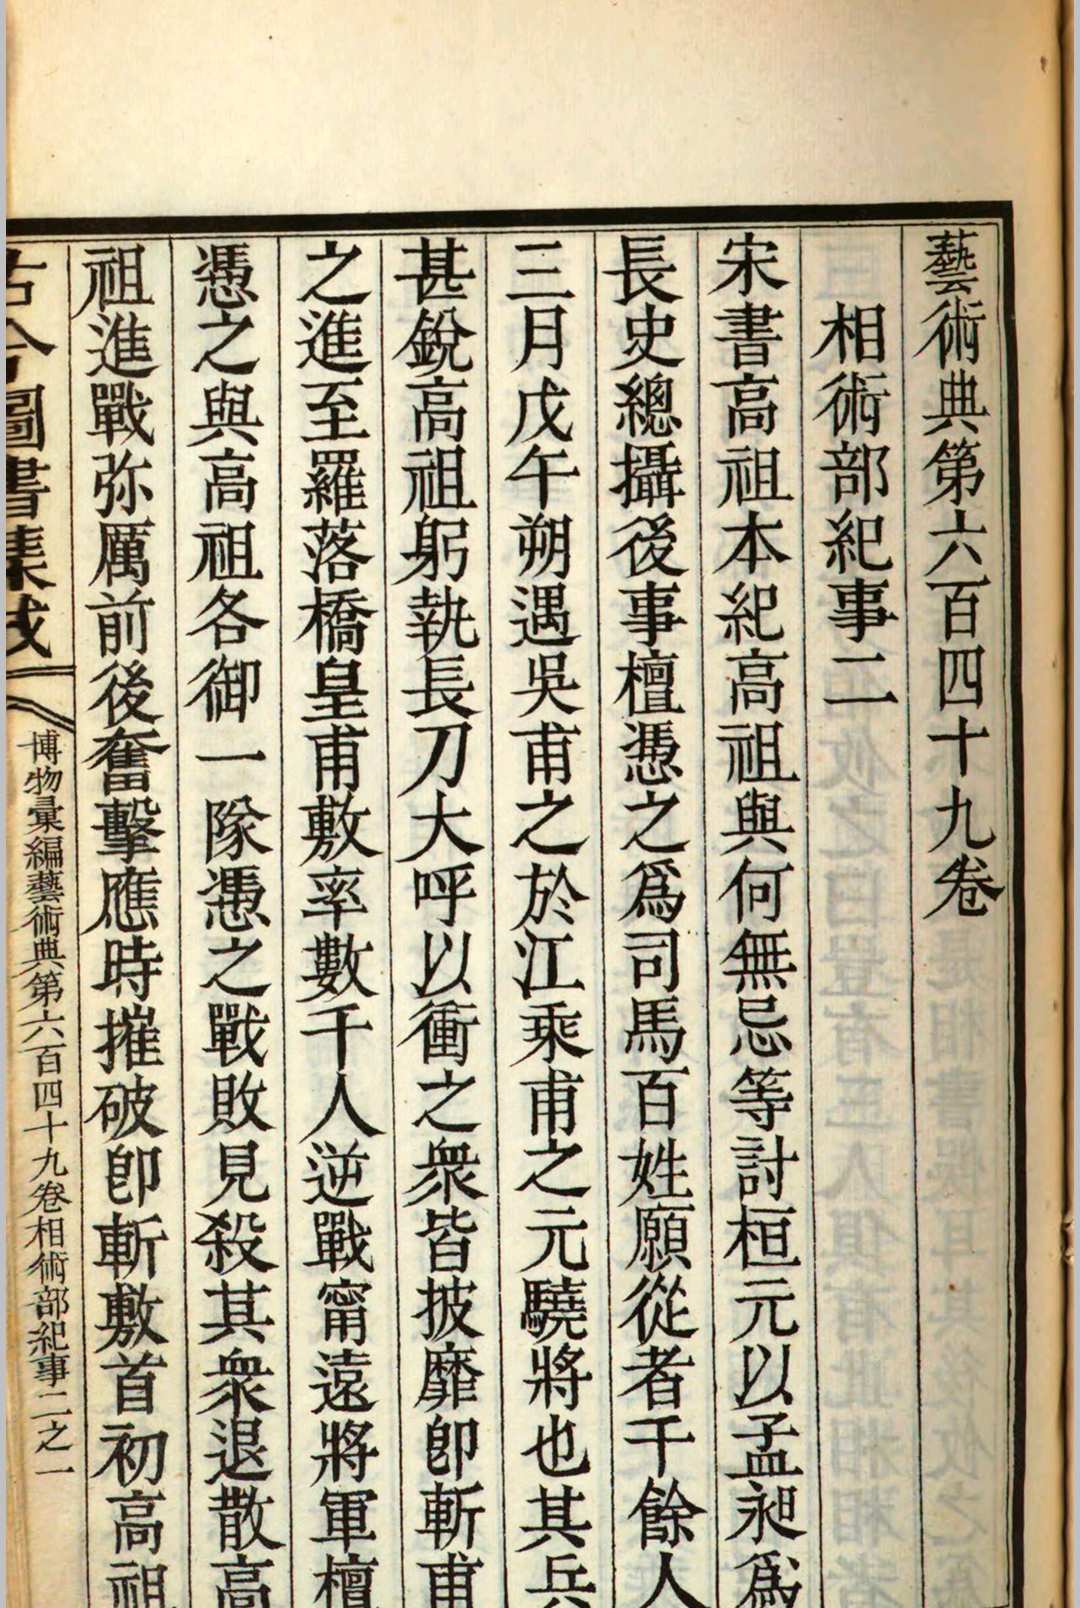 藝術典第六百四十九卷
相術部紀事二
宋書高祖本紀高祖與何無忌等討桓元以孟昶爲
長史總攝後事檀憑之爲司馬百姓願從者千餘人
三月戊午朔遇吳甫之於江乘甫之元驍將也其兵
甚銳高祖躬執長刀大呼以衝之衆皆披靡卽斬甫
之進至羅落橋皇甫敷率數千人逆戰甯遠將軍檀
憑之與高祖各御一隊憑之戰敗見殺其衆退散高
祖進戰弥厲前後奮擊應時摧破卽斬敷首初高祖
古今圖書集成
博物彙編藝術典第六百四十九卷相術部紀事二之一